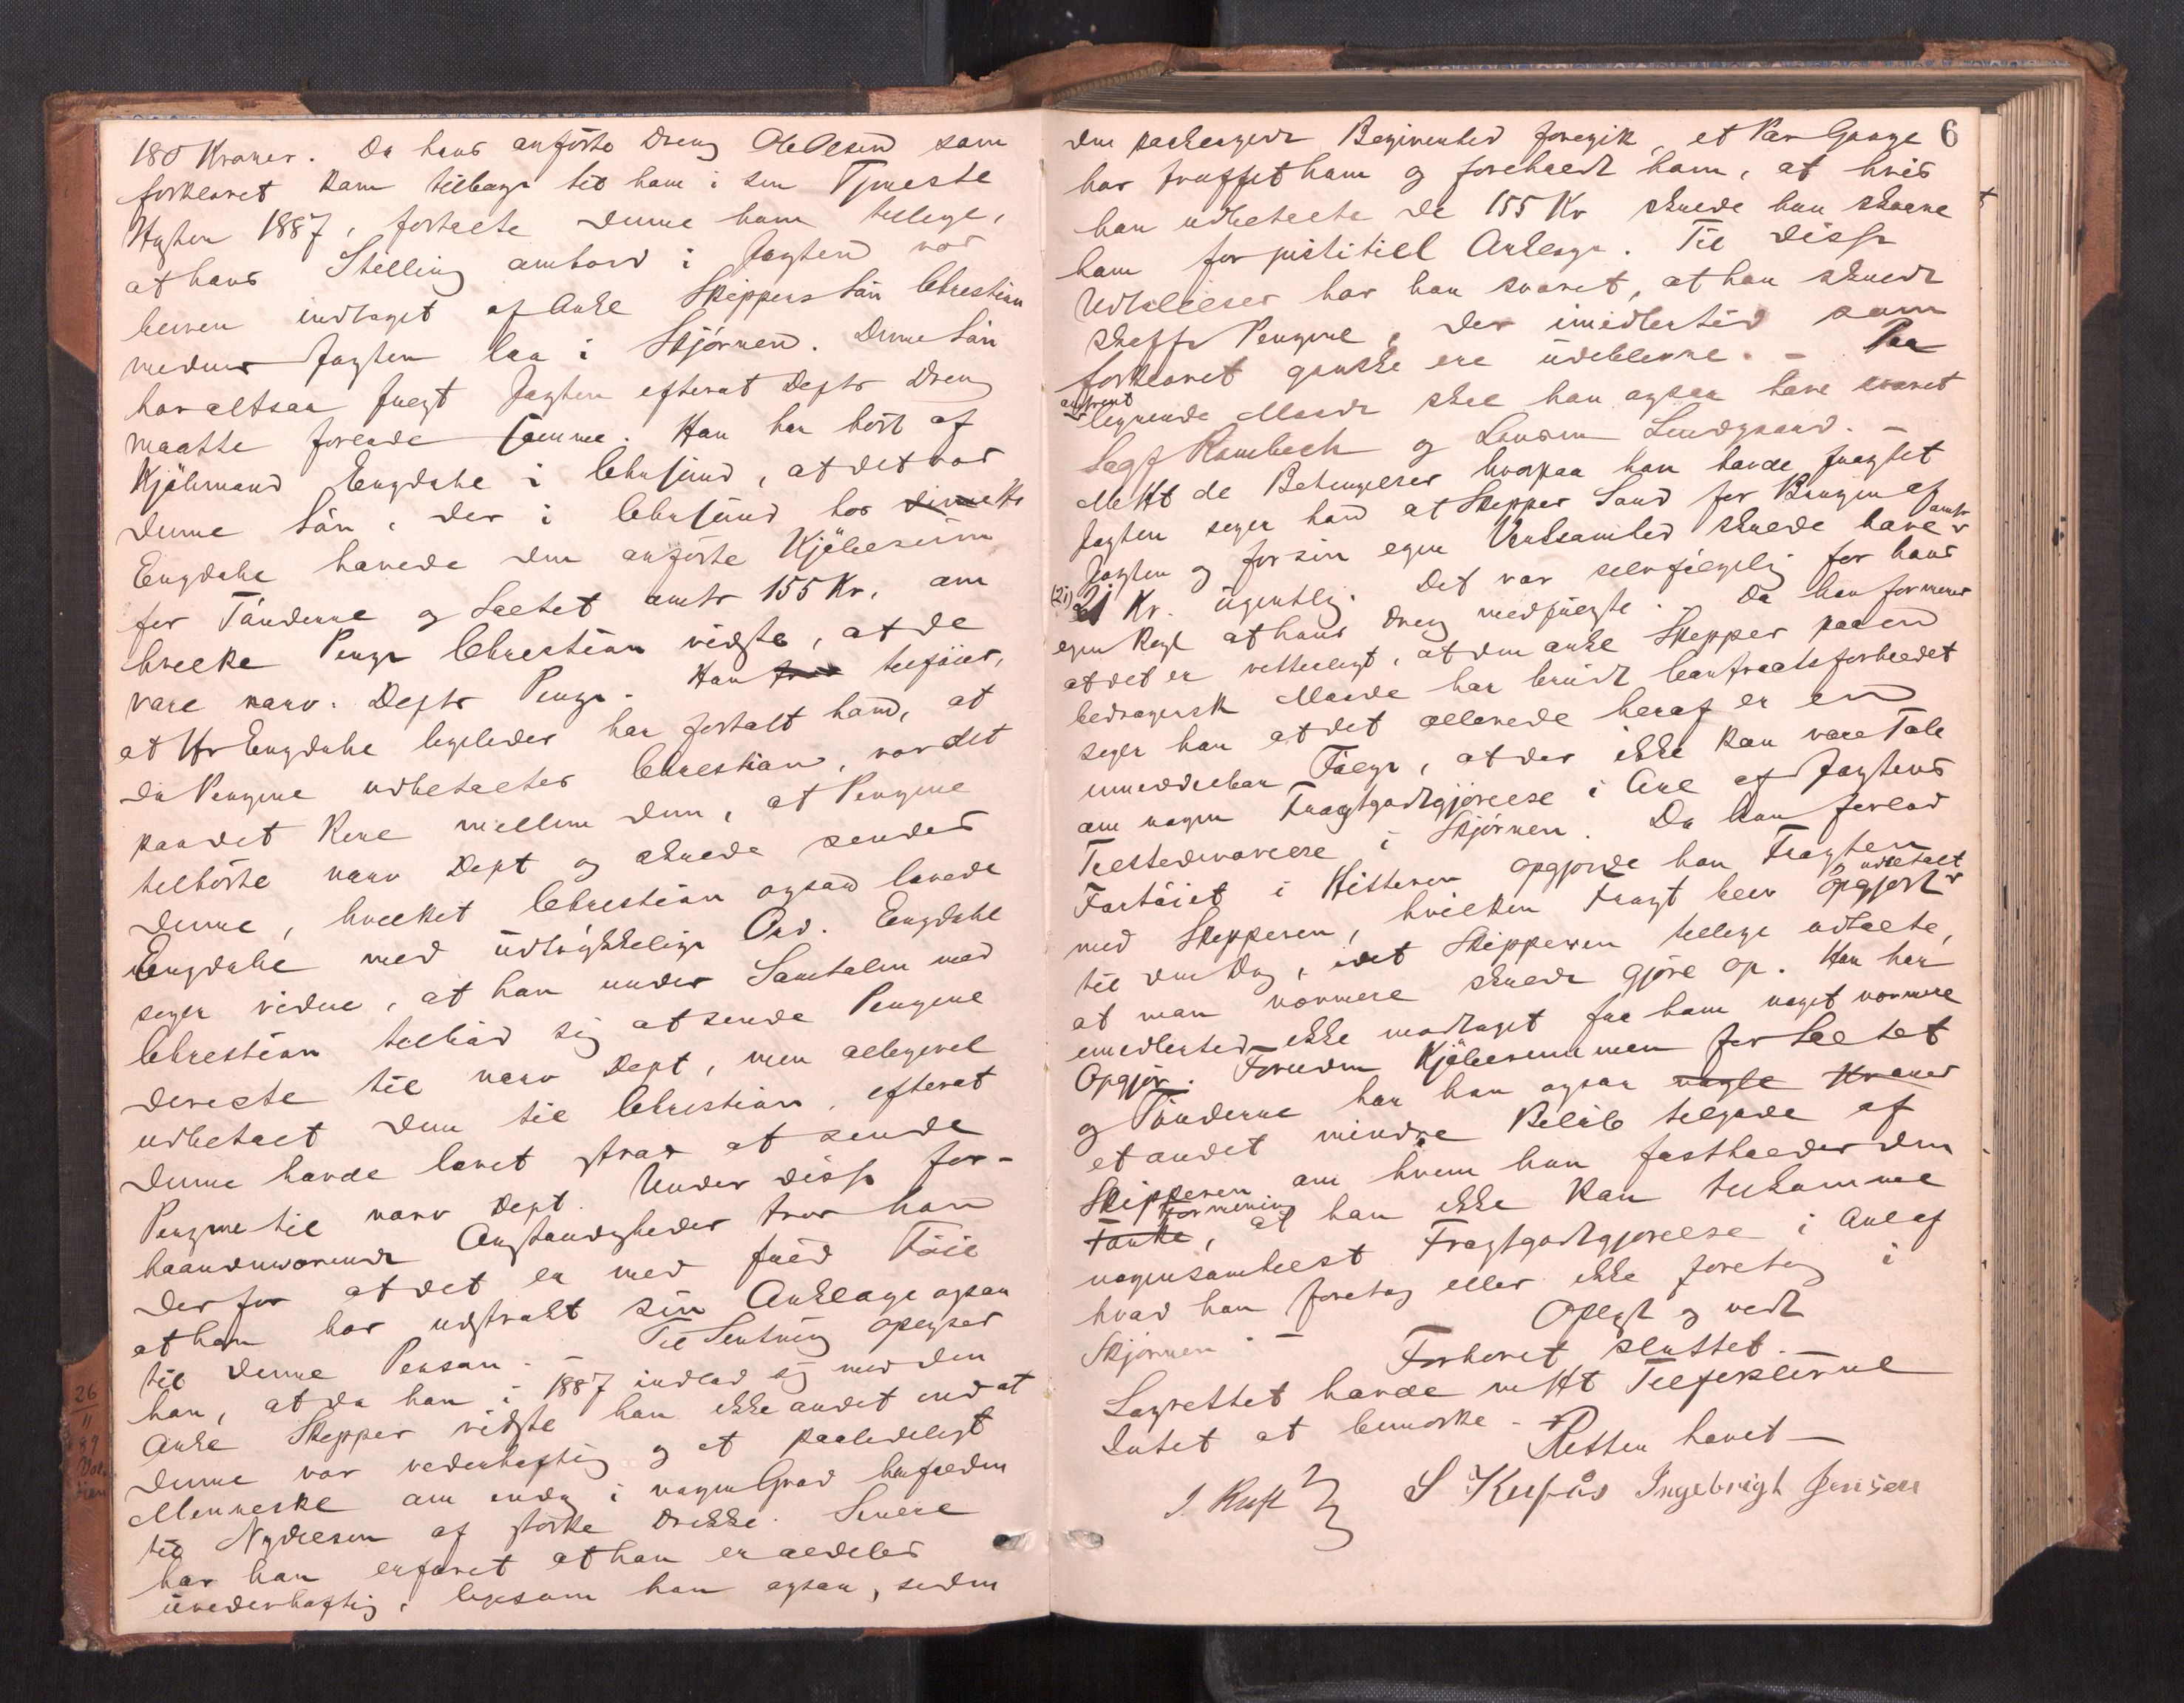 180 Kroner. Da hans anførte Dreng Ole Olsen som
forklaret kom tilbage til ham i sin Tjeneste
Høsten 1887, fortalte denne ham tillige,
at hans Stilling ombord i Jagten var
bleven indtaget af Ankl Skippers Søn Christian
medens Jagten laa i Stjørnen. Denne Søn
har altsaa fulgt Jagten efterat Depts Dreng
maatte forlade samme. Han har hørt af
Kjøbmand Engdahl i Chrsund, at det var
denne Søn, der i Chrsund hos Hr
Engdahl hævede den anførte Kjøbesum
for Tønderne og Saltet omtr 155 Kr, om
hvilke Penge Christian vidste, at de
vare nærv. Depts Penge. Han tilføier,
at Hr Engdahl ligeledes har fortalt ham, at
da Pengene udbetaltes Christian, var det
paa det Rene mellem dem, at Pengene
tilhørte nærv Dept og skulde sendes
denne, hvilket Christian ogsaa lovede
Engdahl med udtrykkelige Ord. Engdahl
siger videre, at han under Samtalen med
Christian tilbød sig at sende Pengene
direkte til nærv Dept, men alligevel
udbetalt dem til Christian, efterat
denne havde lovet strax at sende
Pengene til nærv Dept. Under disse for-
haandenværende Omstændigheder tror han
derfor at det er med fuld Føie
at han har udstrakt sin Anklage ogsaa
til denne Person. – Til Slutning oplyser
han, at da han i 1887 indlod sig med den
Ankl Skipper vidste han ikke andet end at
denne var vederhæftig og et paalideligt
Menneske om end i nogen Grad henfalden
til Nydelsen af stærke Drikke. Senere
har han erfaret at han er aldeles
uvederhæftig, ligesom han ogsaa, siden
6
den paaklagede Begivenhed foregik, et Par Gange
har truffet ham og foreholdt ham, at hvis
han udbetalte de 155 Kr skulde han skaane
ham for justitiel Anklage. Til disse
Udtalelser har han svaret, at han skulde
skaffe Pengene, der imidlertid som
forklaret ganske ere udeblevne. – Paa
omtrent
lignende Maade skal han ogsaa have svaret
Sagf Rambech og Lensm Lundgaard. –
M Ht de Betingelser hvorpaa han havde fragtet
Jagten siger han at Skipper Sand for Brugen af
Jagten og for sin egen Virksomhed skulde have omtr
(21) 21 Kr. ugentlig. Det var selvfølgelig for hans
egen Regn at hans Dreng medfulgte. – Da han formener
at det er vitterligt, at den ankl Skipper paa en
bedragersk Maade har brudt Contraktsforholdet
siger han at det allerede heraf er en
umiddelbar Følge, at der ikke kan være Tale
om nogen Fragtgodtgjørelse i Anl af Jagtens
Tilstedeværelse i Stjørnen. Da han forlod
Fartøiet i Hitteren opgjorde han Fragten
med Skipperen, hvilken Fragt blev opgjort og udbetalt
til den Dag, idet Skipperen tillige udtalte,
at man nærmere skulde gjøre op. Han har
imidlertid ikke modtaget fra ham noget nærmere
Opgjør. Foruden Kjøbesummen for Saltet
og Tønderne har han ogsaa nogle Kroner
et andet mindre Beløb tilgode af
Skipperen om hvem han fastholder den
Tanke, Formening at han ikke kan tilkomme
nogensomhelst Fragtgodtgjørelse i Anl af
hvad han foretog eller ikke foretog i
Stjørnen. –
Oplæst og vedt
Forhøret sluttet.
Lagrettet havde mHt Tilførslerne
Intet at bemærke. –
Retten hævet –
Ingebrigt Jensen
26
11
89